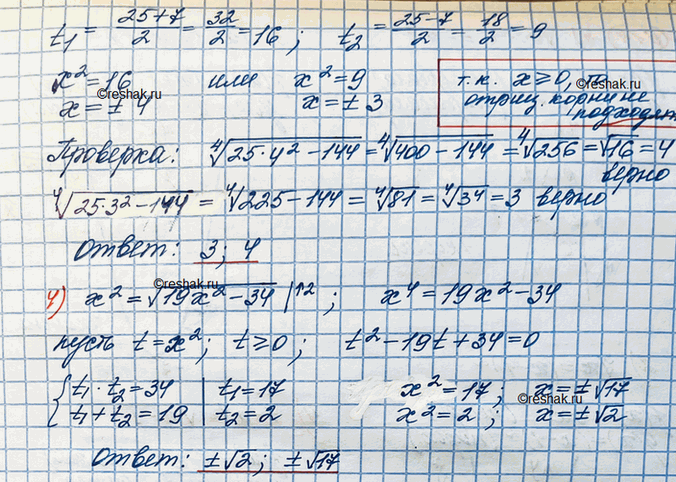 t₁ = (25+7)/2 = 32/2 = 16 ; t₂ = (25−7)/2 = 18/2 = 9
x² = 16 или x² = 9
x = ± 4 x = ± 3
©reshak.ru
т.к. x ≥ 0, то
©reshak.ru
отриц. корни не
подходят
Проверка: ⁴√(25·4² − 144) = ⁴√(400 − 144) = ⁴√256 = √16 = 4
верно
⁴√(25·3² − 144) = ⁴√(225 − 144) = ⁴√81 = ⁴√3⁴ = 3 верно
Ответ: 3; 4
©reshak.ru
4) x² = √(19x² − 34) |↑2 ; x⁴ = 19x² − 34
пусть t = x²; t ≥ 0; t² − 19t + 34 = 0
{ t₁ · t₂ = 34 | t₁ = 17 x² = 17 ; x = ±√17
t₁ + t₂ = 19 | t₂ = 2 x² = 2 ; x = ±√2
©reshak.ru
Ответ: ±√2 ; ±√17